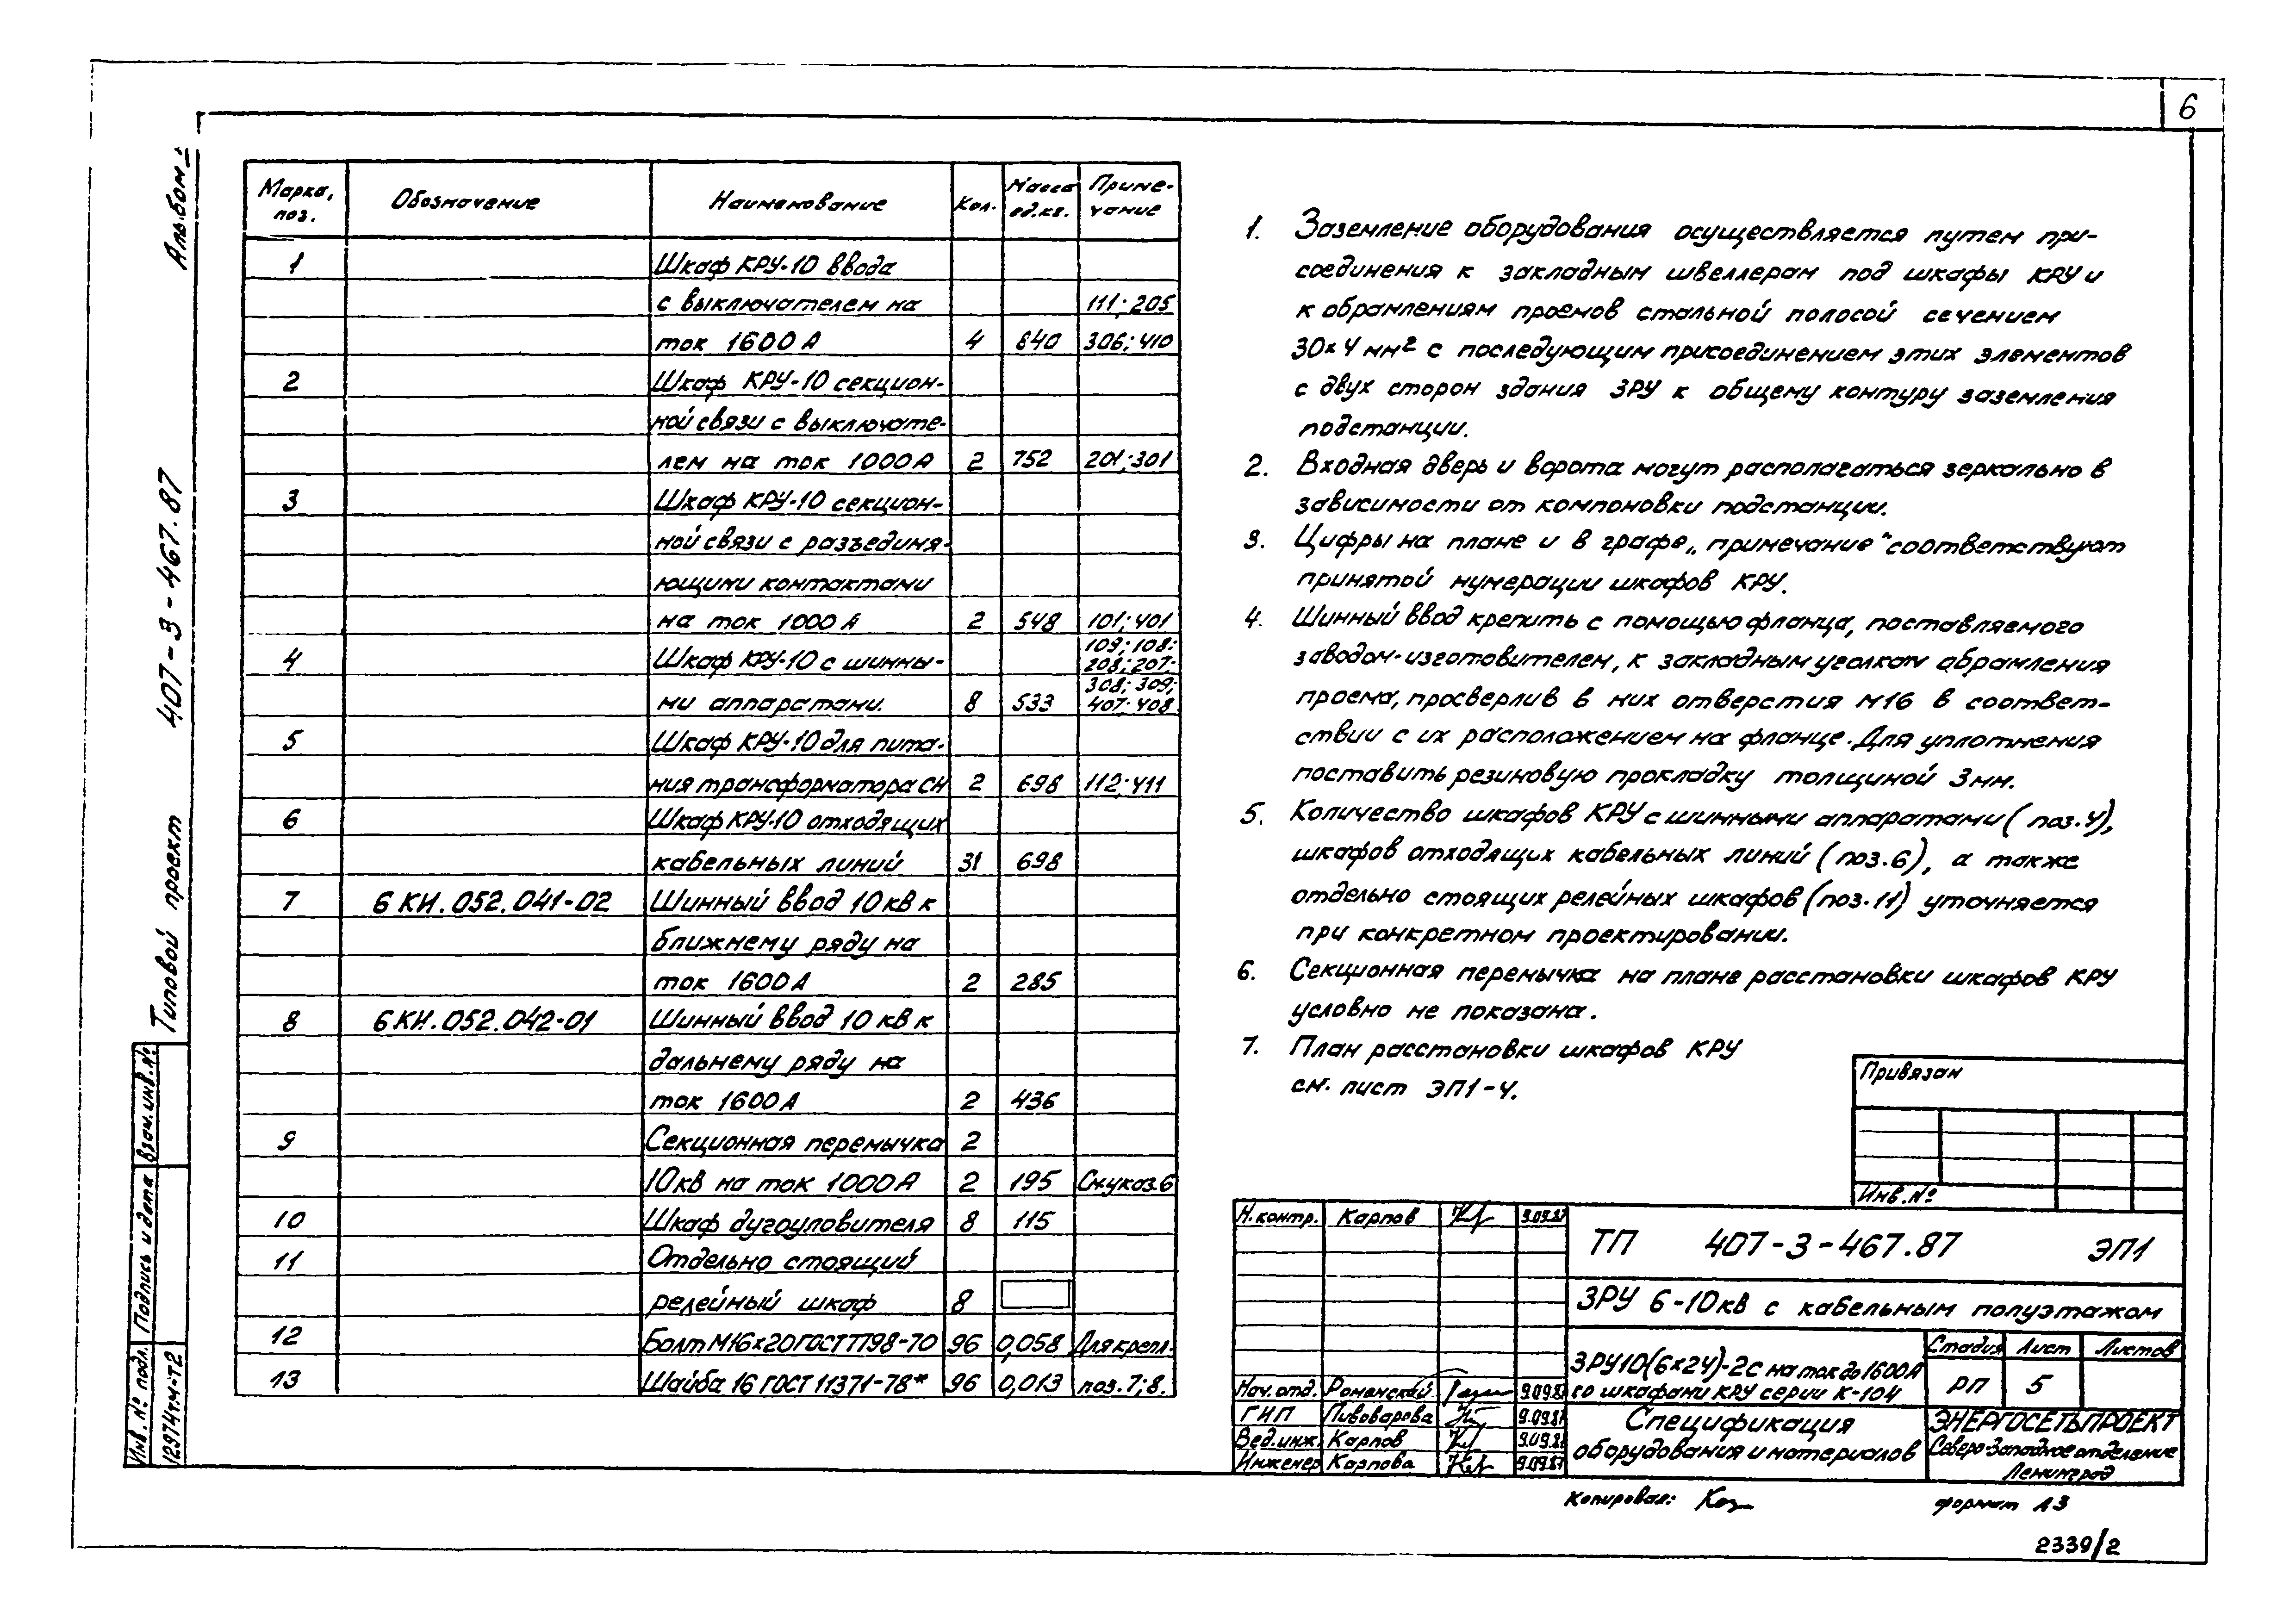 6
Альбом
Типовой проект 407-3-467.87
Взам.инв.№
Подпись и дата
Инв. № подл.
12974тм-т2
Марка, поз.
Обозначение
Наименование
Кол.
Масса ед.кг.
Приме-чание
1 Шкаф КРУ-10 ввода
с выключателем на 111; 205
ток 1600 А 4 840 306; 410
2 Шкаф КРУ-10 секцион-
ной связи с выключате-
лем на ток 1000А 2 752 201; 301
3 Шкаф КРУ-10 секцион-
ной связи с разъединя-
ющими контактами
на ток 1000 А 2 548 101; 401
109; 108;
4 Шкаф КРУ-10 с шинны- 208; 207;
308; 309;
ми аппаратами. 8 533 407; 408
5 Шкаф КРУ-10 для пита-
ния трансформатора СН 2 698 112; 411
6 Шкаф КРУ-10 отходящих
кабельных линий 31 698
7 6 КИ.052.041-02 Шинный ввод 10 кВ к
ближнему ряду на
ток 1600 А 2 285
8 6КИ.052.042-01 Шинный ввод 10 кВ к
дальнему ряду на
ток 1600 А 2 436
9 Секционная перемычка 2
10кВ на ток 1000 А 2 195 См.указ.6
10 Шкаф дугоуловителя 8 115
11 Отдельно стоящий
релейный шкаф 8
12 Болт М16х20 ГОСТ 7798-70 96 0,058 Для крепл.
13 Шайба 16 ГОСТ 11371-78* 96 0,013 поз. 7; 8.
1. Заземление оборудования осуществляется путем при-
соединения к закладным швеллерам под шкафы КРУ и
к обрамлениям проемов стальной полосой сечением
30х4 мм² с последующим присоединением этих элементов
с двух сторон здания ЗРУ к общему контуру заземления
подстанции.
2. Входная дверь и ворота могут располагаться зеркально в
зависимости от компоновки подстанции.
3. Цифры на плане и в графе „примечание" соответствуют
принятой нумерации шкафов КРУ.
4. Шинный ввод крепить с помощью фланца, поставляемого
заводом-изготовителем, к закладным уголкам обрамления
проема, просверлив в них отверстия М16 в соответ-
ствии с их расположением на фланце. Для уплотнения
поставить резиновую прокладку толщиной 3мм.
5. Количество шкафов КРУ с шинными аппаратами (поз.4),
шкафов отходящих кабельных линий (поз.6), а также
отдельно стоящих релейных шкафов (поз.11) уточняется
при конкретном проектировании.
6. Секционная перемычка на плане расстановки шкафов КРУ
условно не показана.
7. План расстановки шкафов КРУ
см. лист ЭП1-4.
Привязан
Инв.№
Н.контр. Карпов 9.09.87
ТП 407-3-467.87 ЭП1
ЗРУ 6-10кВ с кабельным полуэтажом
ЗРУ10(6х24)-2с на ток до 1600А
со шкафами КРУ серии К-104
Стадия Лист Листов
РП 5
Нач.отд. Романский 9.09.87
ГИП Пивоварова 9.09.87
Вед.инж. Карпов 9.09.87
Инженер Карпова 9.09.87
Спецификация
оборудования и материалов
ЭНЕРГОСЕТЬПРОЕКТ
Северо-Западное отделение
Ленинград
Копировал:
формат А3
2339/2